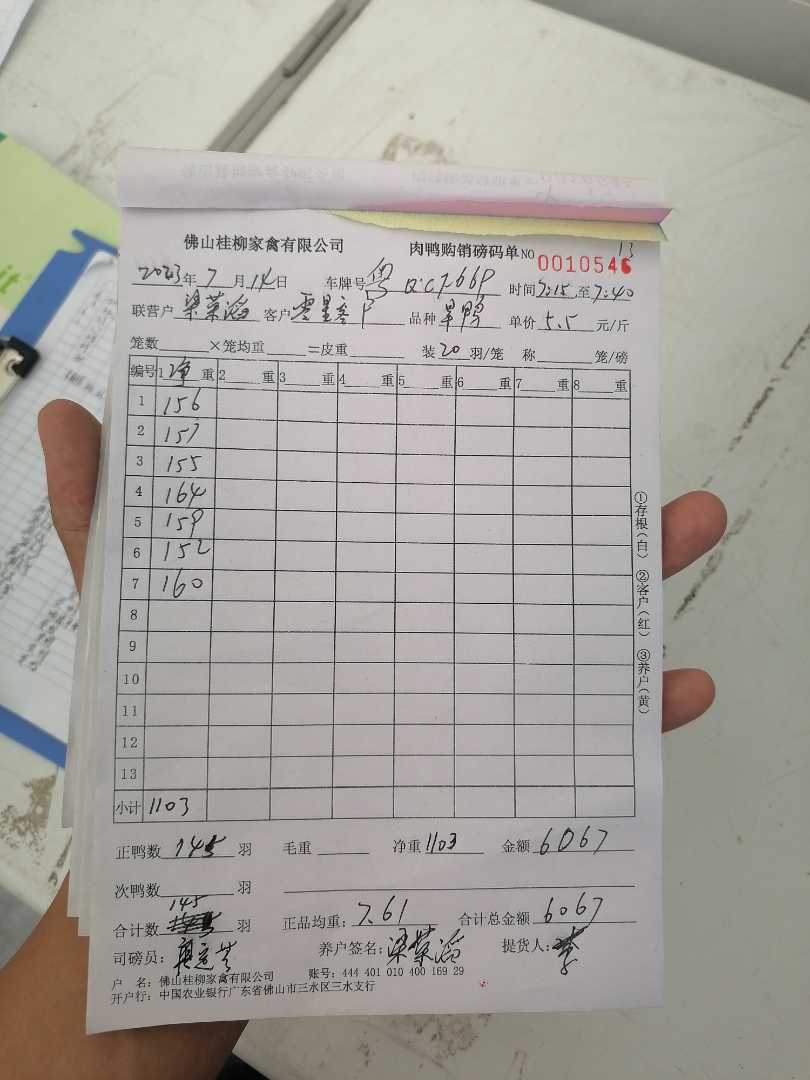 13
佛山桂柳家禽有限公司 肉鸭购销磅码单 NO 0010546
2023年7月14日 车牌号 粤 时间7:15至7:40
联营户 梁荣滔 客户 零星客户 品种 旱鸭 单价 5.5 元/斤
笼数 ×笼均重 =皮重 装20羽/笼 称 笼/磅
编号 1净重 2 重 3 重 4 重 5 重 6 重 7 重 8 重
1 156
2 157
3 155
4 164
5 159
6 152
7 160
8
9
10
11
12
13
小计 1103
①存根(白) ②客户(红) ③养户(黄)
正鸭数 145 羽 毛重 净重 1103 金额 6067
次鸭数 羽
合计数 145 羽 正品均重: 7.61 合计总金额 6067
司磅员: 养户签名: 梁荣滔 提货人: 李
户 名: 佛山桂柳家禽有限公司 账号: 444 401 010 400 169 29
开户行: 中国农业银行广东省佛山市三水区三水支行